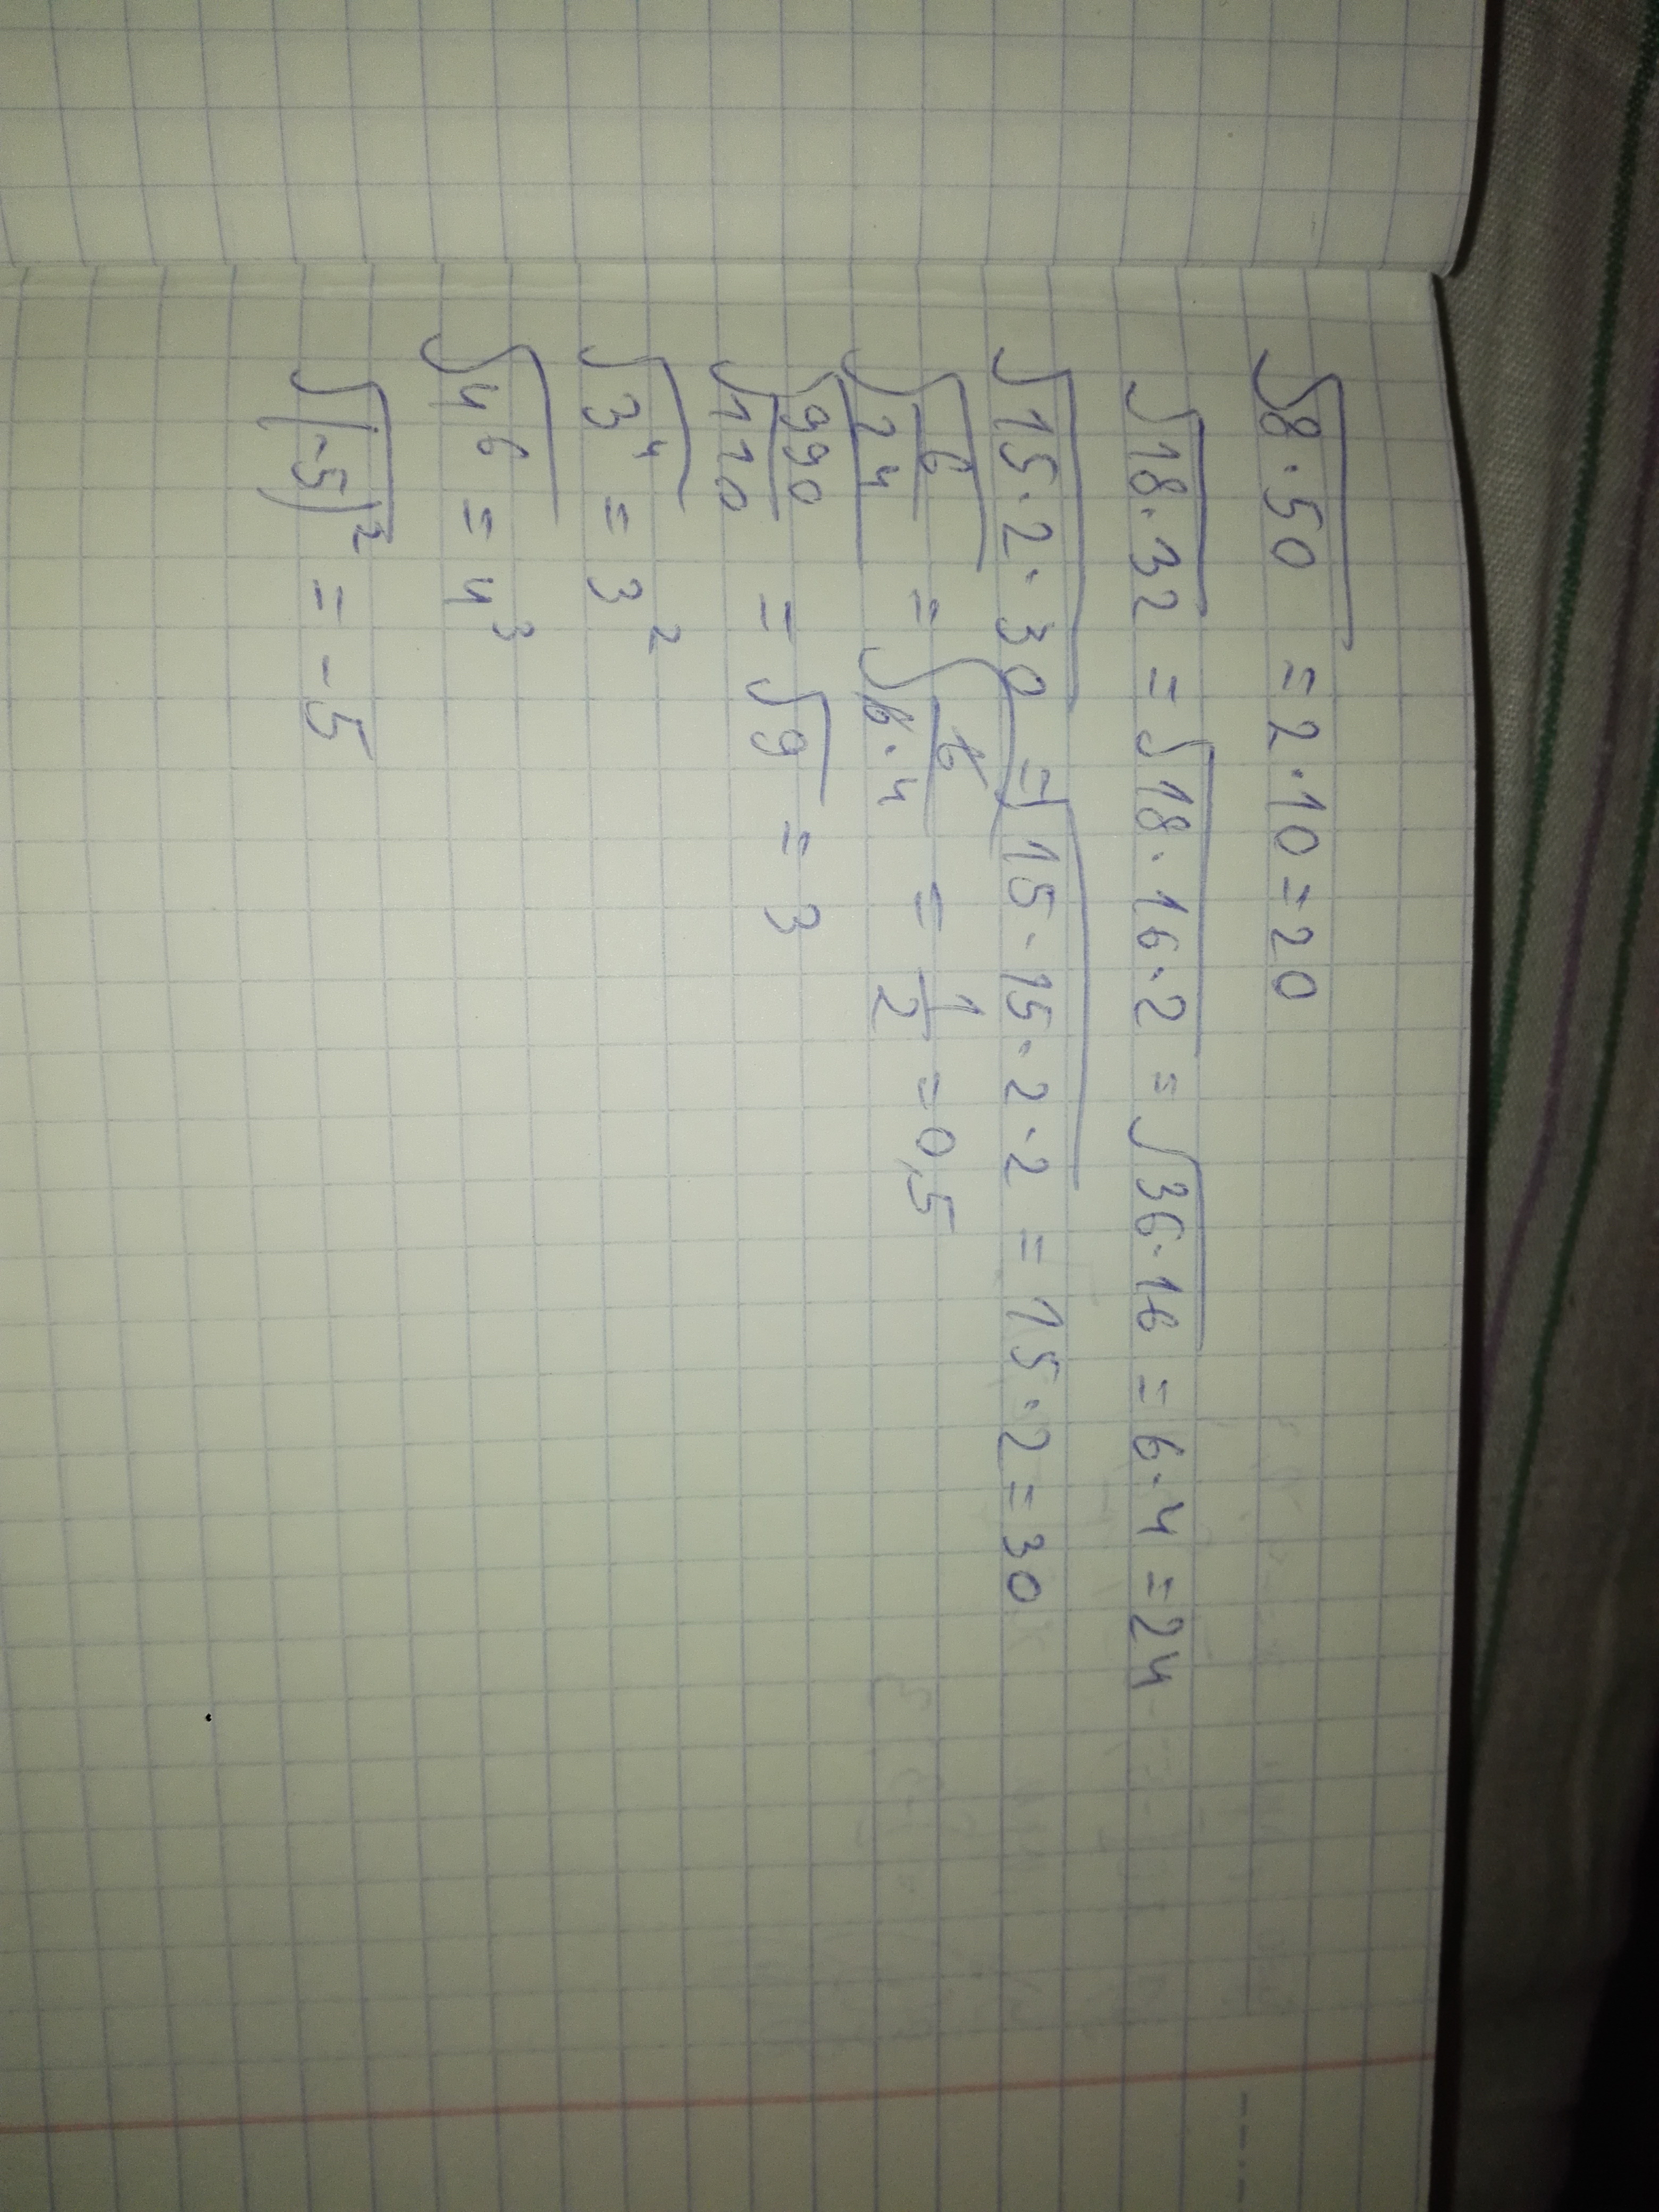 √8·50 = 2·10 = 20
√18·32 = √18·16·2 = √36·16 = 6·4 = 24
√15·2·30 = √15·15·2·2 = 15·2 = 30
√6/√24 = √6/6·4 = 1/2 = 0,5
√990/√110 = √9 = 3
√3⁴ = 3²
√4⁶ = 4³
√(-5)² = -5